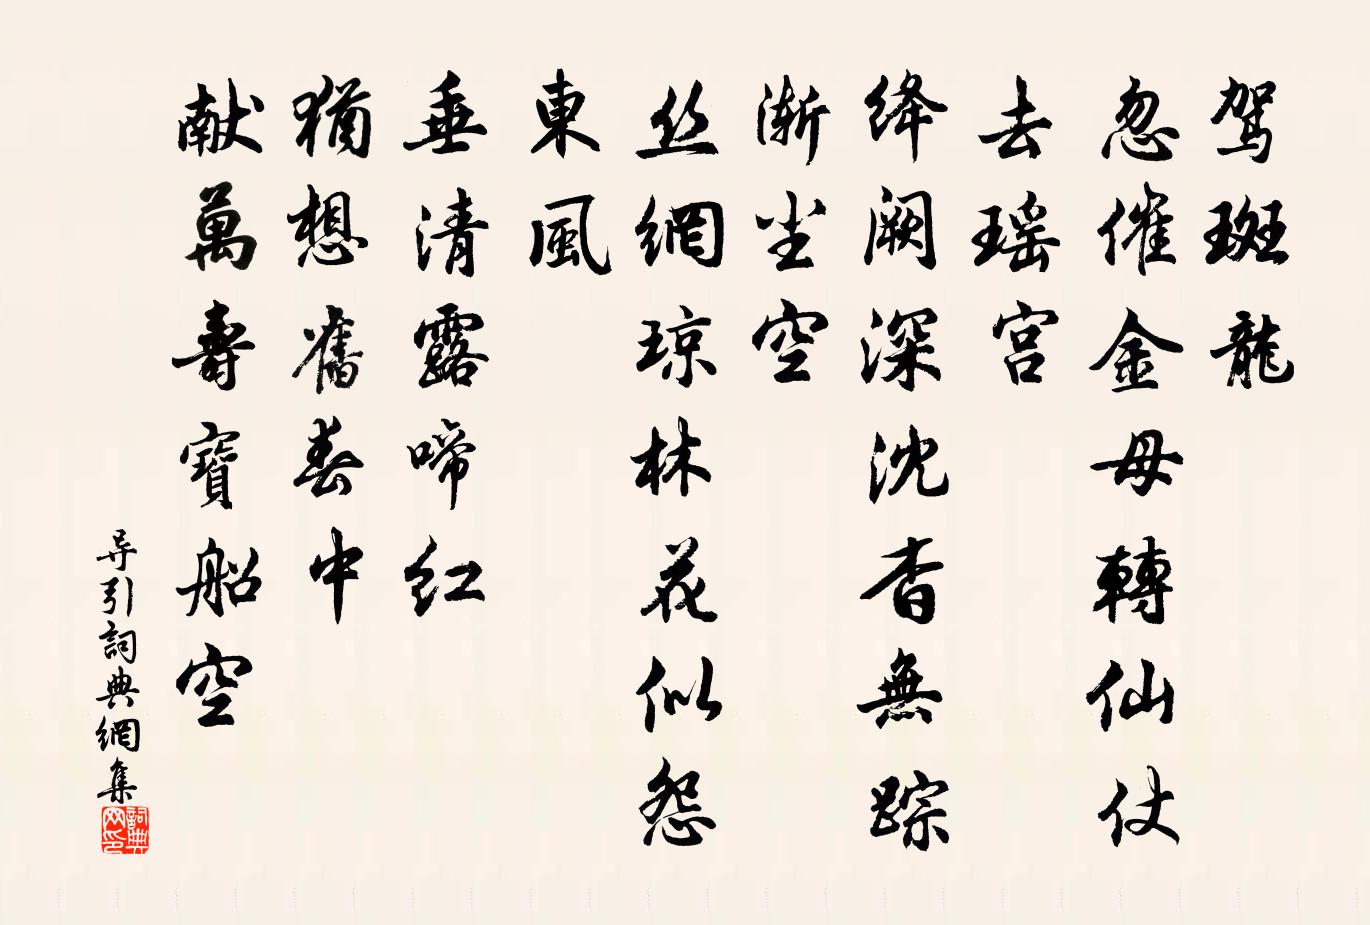 駕斑龍
忽催金母轉仙仗
去瑤宮
絳闕深沈杳無踪
漸坐空
丝網琼林花似怨
東風
垂清露啼红
猶想舊春中
献萬壽寶船空
导引詞典網集
詞典网印